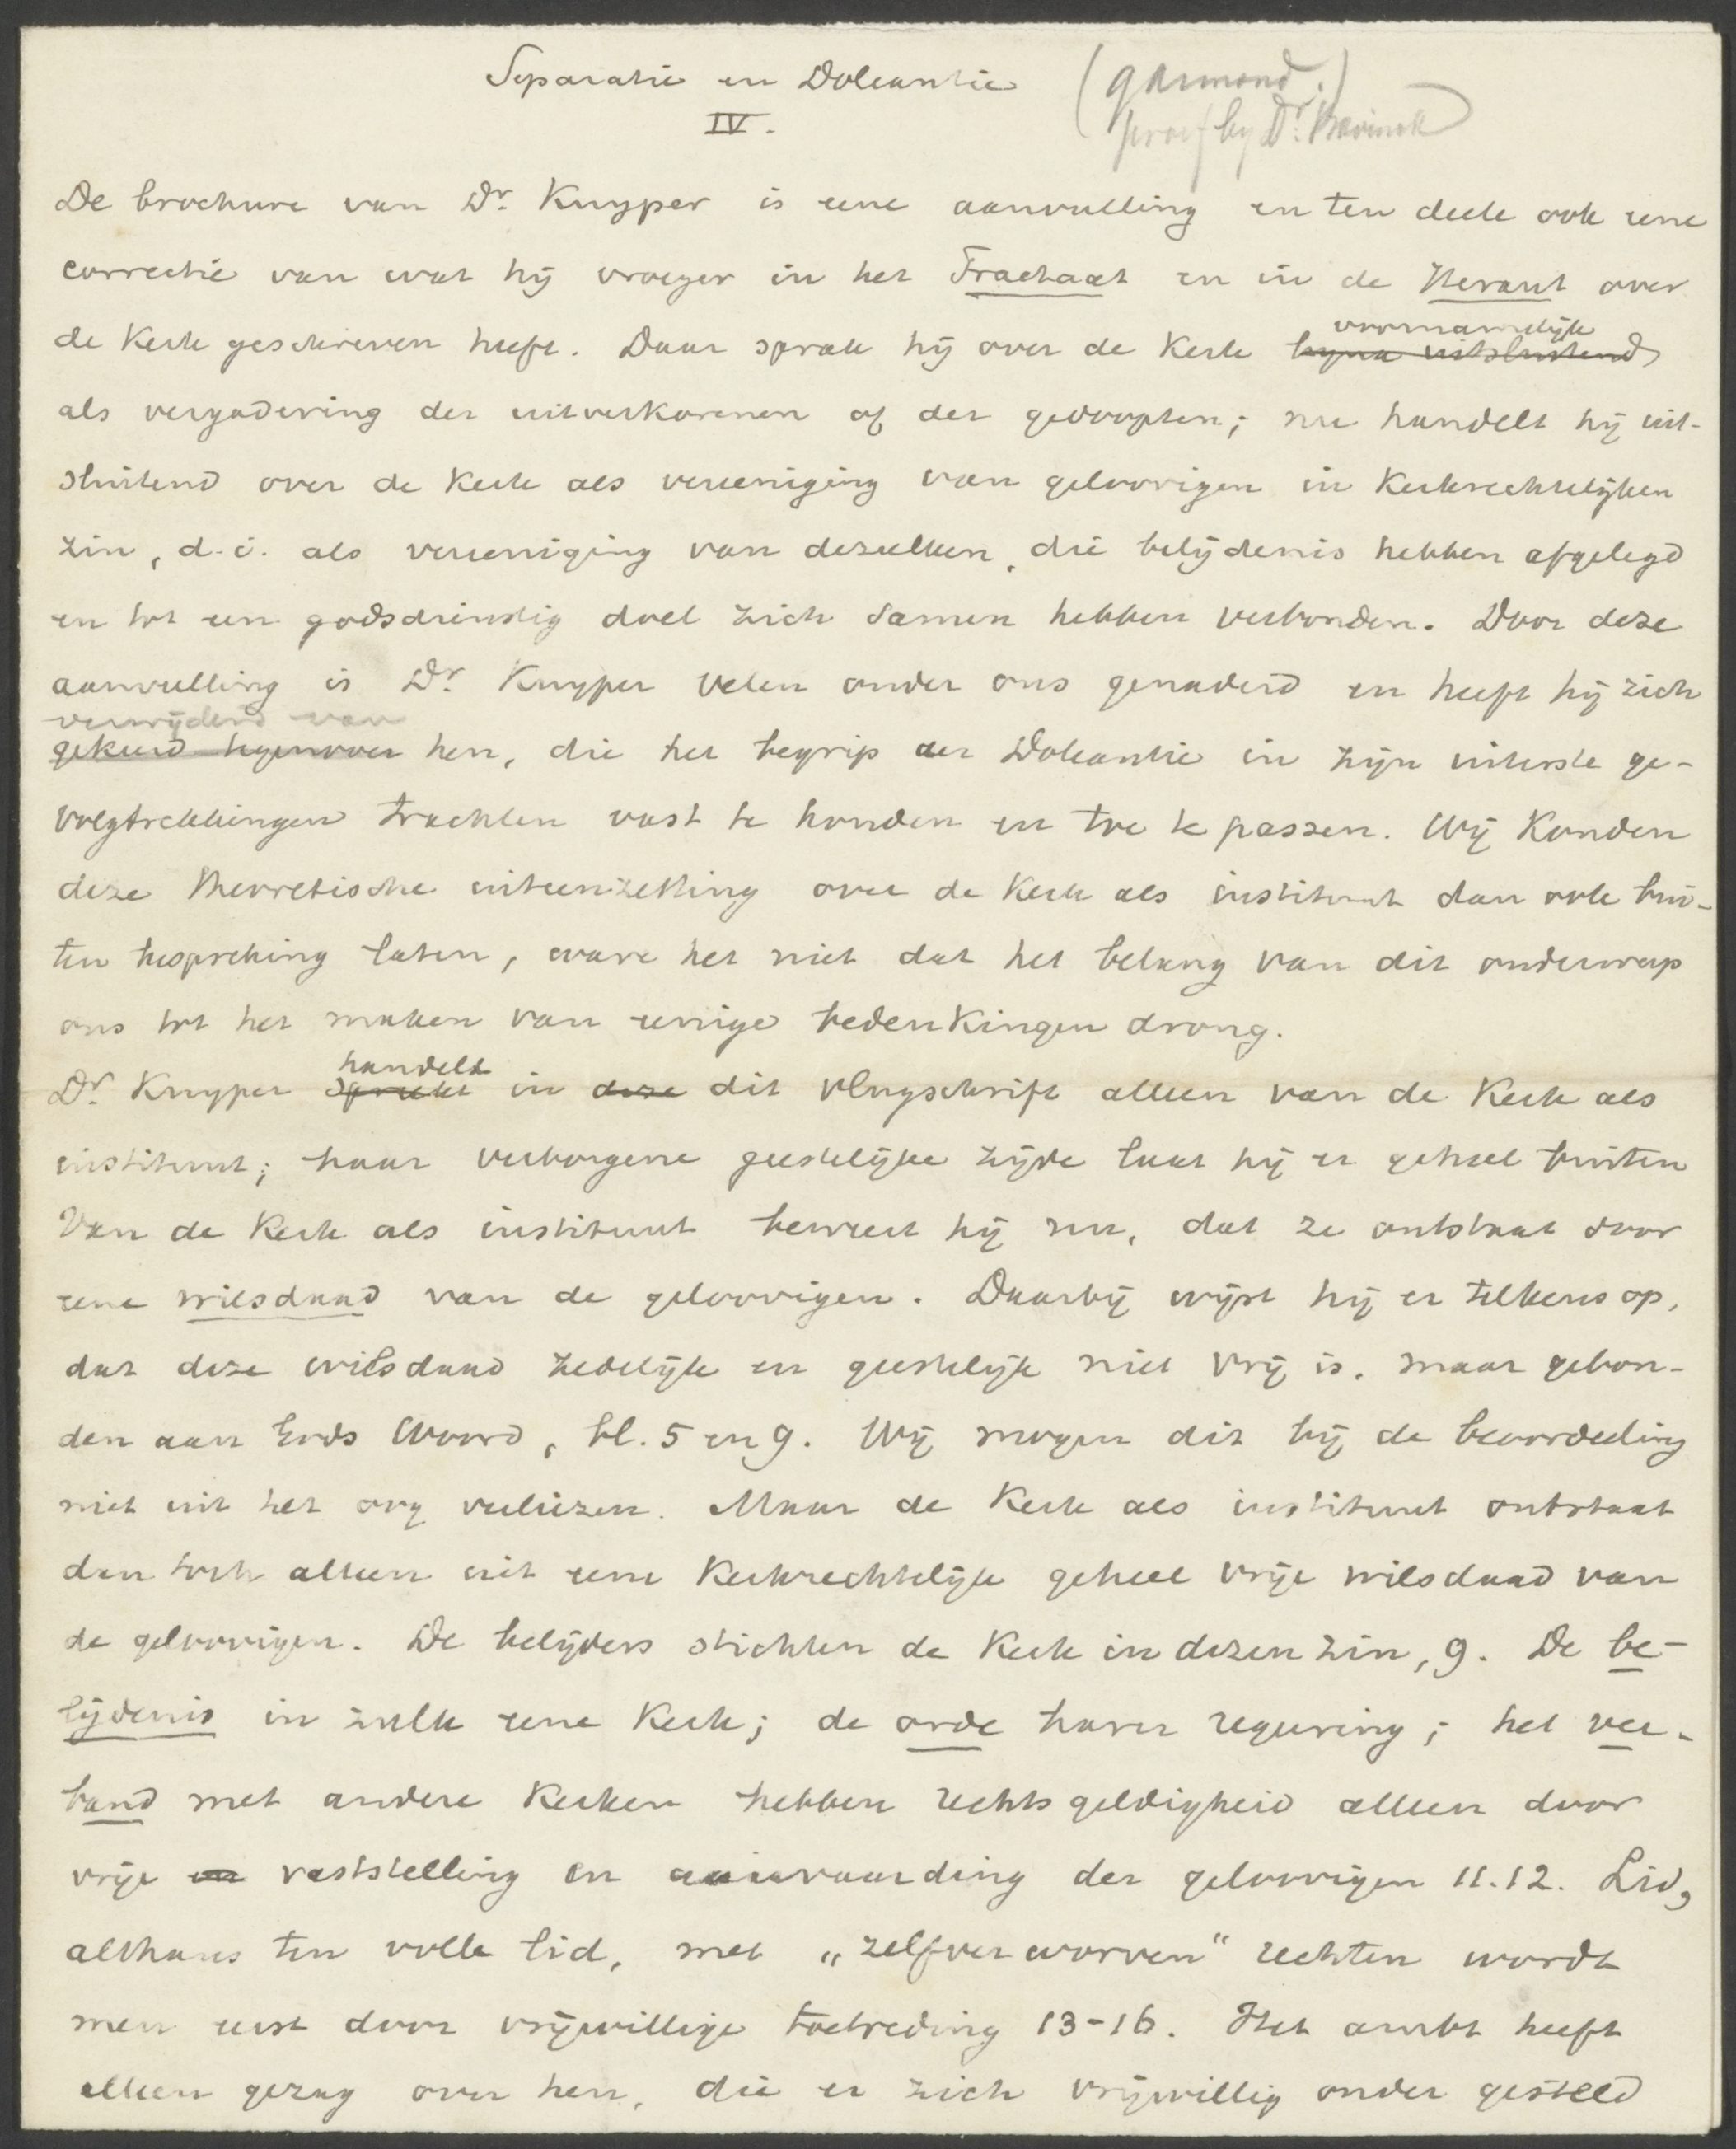 Separatie en Doleantie (garmond.)
IV. proef by Dr. Bavinck
De brochure van Dr. Kuyper is eene aanvulling en ten deele ook eene
correctie van wat hij vroeger in het Tractaat en in de Heraut over
de Kerk geschreven heeft. Daar sprak hij over de Kerk bijna uitsluitend voornamelijk
als vergadering der uitverkorenen of der gedoopten; nu handelt hij uit-
sluitend over de Kerk als vereeniging van geloovigen in Kerkrechtelijken
zin, d.i. als vereeniging van dezulken, die belijdenis hebben afgelegd
en tot een godsdienstig doel zich samen hebben verbonden. Door deze
aanvulling is Dr. Kuyper velen onder ons genaderd en heeft hij zich
verwijderd van
gekeerd tegenover hen, die het begrip der Doleantie in zijn uiterste ge-
volgtrekkingen trachten vast te houden en toe te passen. Wij Konden
deze theoretische uiteenzetting over de Kerk als instituut dan ook bui-
ten bespreking laten, ware het niet dat het belang van dit onderwerp
ons tot het maken van eenige bedenkingen drong.
Dr. Kuyper spreekt handelt in deze dit vlugschrift alleen van de Kerk als
instituut; haar verborgene geestelijke zijde laat hij er geheel buiten
Van de Kerk als instituut beweert hij nu, dat ze ontstaat door
eene wilsdaad van de geloovigen. Daarbij wijst hij er telkens op,
dat deze wilsdaad zedelijk en geestelijk niet vrij is, maar gebon-
den aan Gods Woord, bl. 5 en 9. Wij mogen dit bij de beoordeeling
niet uit het oog verliezen. Maar de Kerk als instituut ontstaat
dan toch alleen uit eene Kerkrechtelijk geheel vrije wilsdaad van
de geloovigen. De belijders stichten de Kerk in dezen zin, 9. De be-
lijdenis in zulk eene Kerk; de orde harer regeering; het ver-
band met andere Kerken hebben rechtsgeldigheid alleen door
vrije en vaststelling en aanvaarding der geloovigen 11.12. Lid,
althans ten volle lid, met „zelfverworven" rechten wordt
men eerst door vrijwillige toetreding 13-16. Het ambt heeft
alleen gezag over hen, die er zich vrijwillig onder gesteld